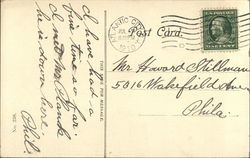 I have had a
fine time so far
I met Mr.
he is down here.
Phil.
THIS SPACE FOR MESSAGE.
Post Card.
ATLANTIC CITY
JUL
1910
U.S. POSTAGE
ONE CENT
Mr Howard Stillman
5016 Wakefield Ave
Phila.